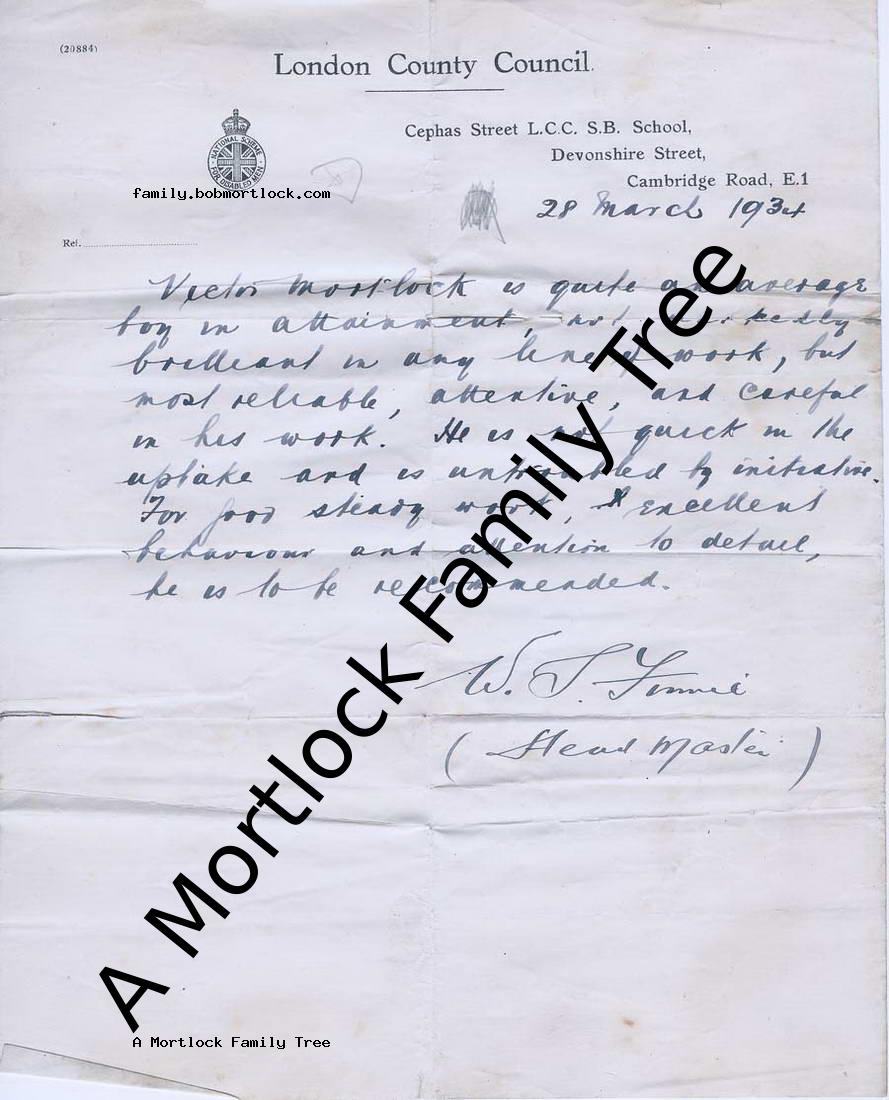 (20884)
London County Council.
NATIONAL SCHEME
FOR DISABLED MEN
family.bobmortlock.com
Cephas Street L.C.C. S.B. School,
Devonshire Street,
Cambridge Road, E.1
28 March 1934
Ref.
Victor Mortlock is quite an average
boy in attainment, not markedly
brilliant in any line of work, but
most reliable, attentive, and careful
in his work. He is not quick in the
uptake and is untroubled by initiative.
For good steady work, & excellent
behaviour and attention to detail,
he is to be recommended.
W. S.
(Head Master)
A Mortlock Family Tree
A Mortlock Family Tree